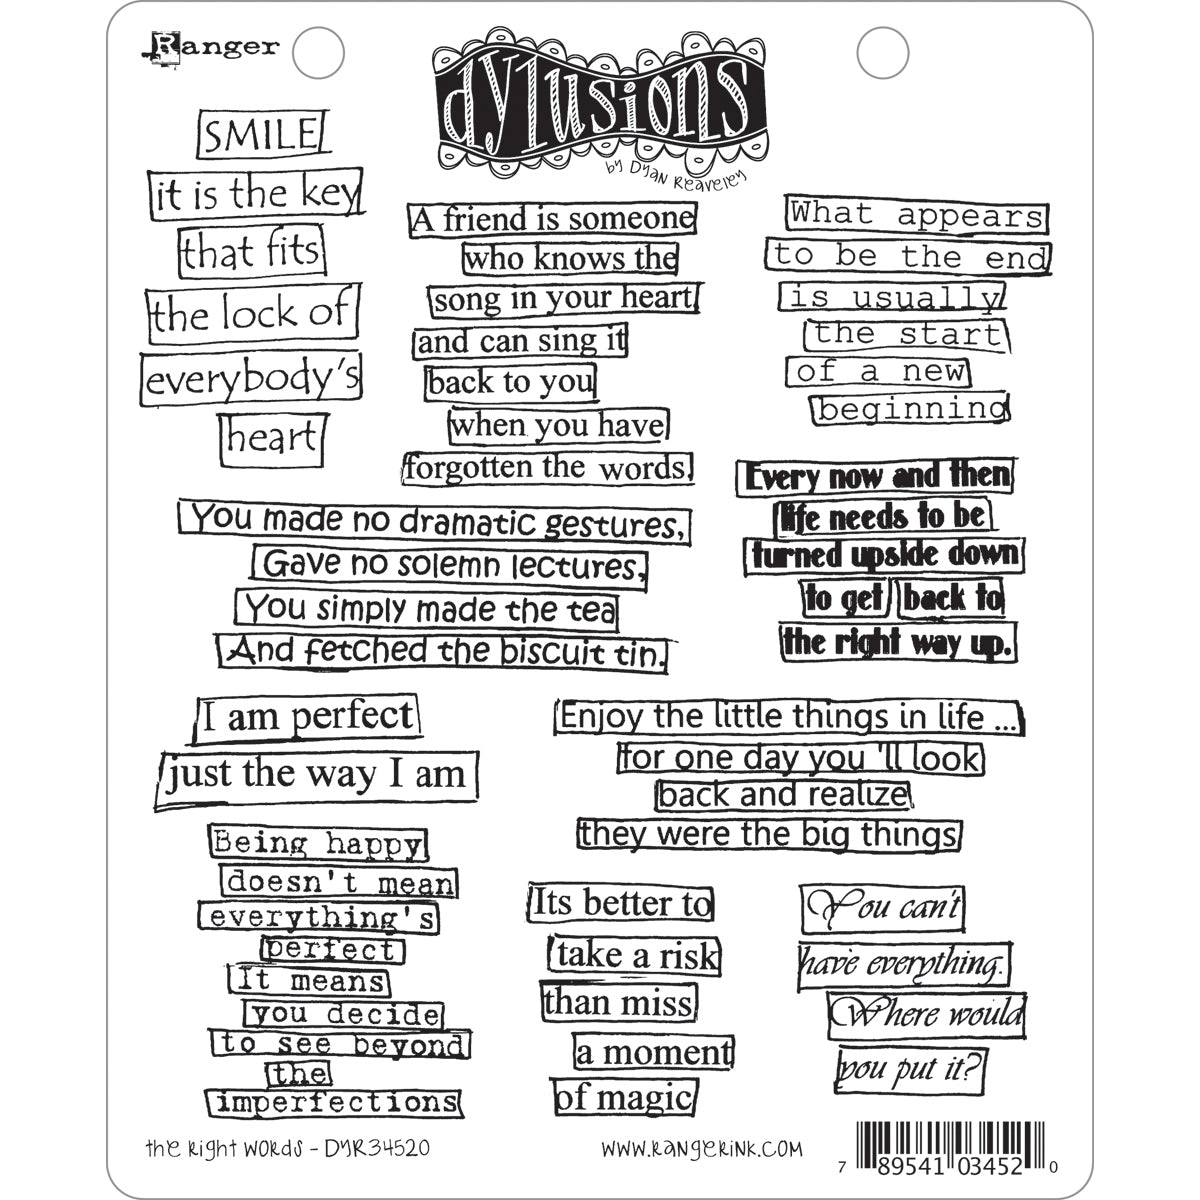 Ranger
dylusions
by Dyan Reaveley
SMILE
it is the key
that fits
the lock of
everybody's
heart
A friend is someone
who knows the
song in your heart
and can sing it
back to you
when you have
forgotten the words.
What appears
to be the end
is usually
the start
of a new
beginning
You made no dramatic gestures,
Gave no solemn lectures,
You simply made the tea
And fetched the biscuit tin.
Every now and then
life needs to be
turned upside down
to get back to
the right way up.
I am perfect
just the way I am
Enjoy the little things in life ...
for one day you 'll look
back and realize
they were the big things
Being happy
doesn't mean
everything's
perfect
It means
you decide
to see beyond
the
imperfections
Its better to
take a risk
than miss
a moment
of magic
You can't
have everything.
Where would
you put it?
the Right Words - DYR34520
www.rangerink.com
7 89541 03452 0